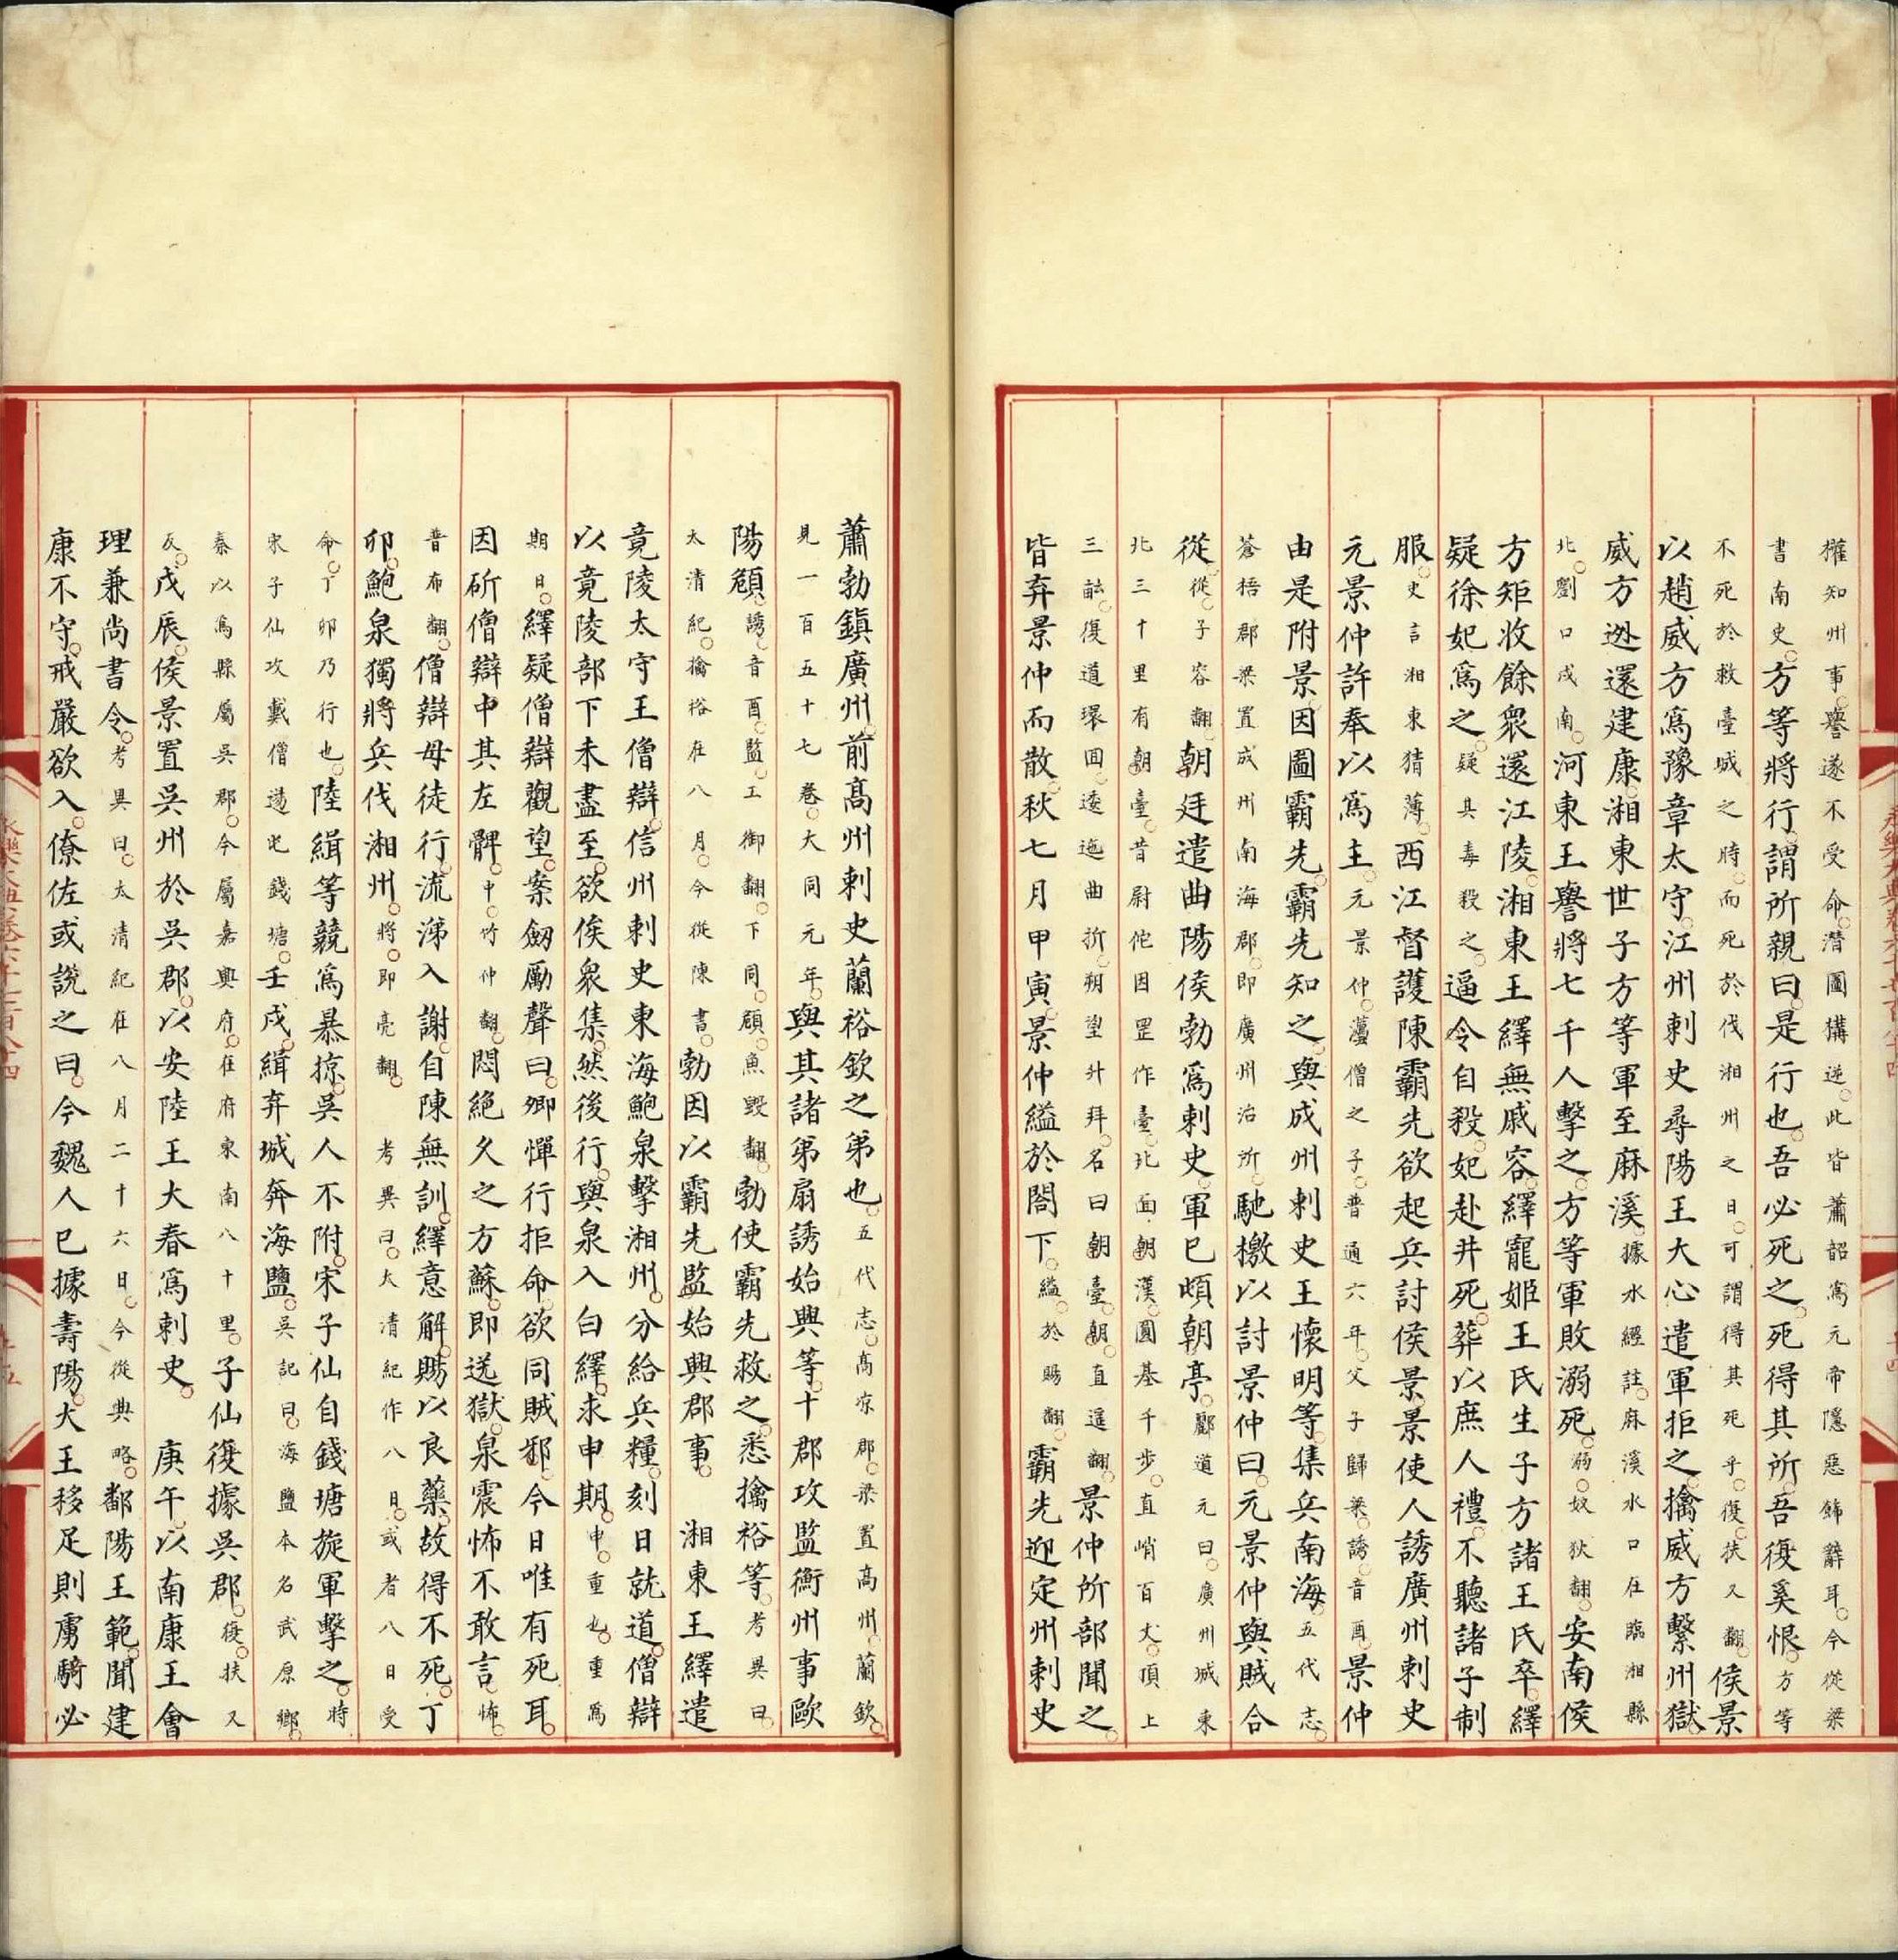 權知州事譽遂不受命潛圖構逆此皆蕭韶爲元帝隱惡飾辭耳今從梁
書南史方等將行謂所親曰是行也吾必死之死得其所吾復奚恨方等
不死於救臺城之時而死於伐湘州之日可謂得其死乎復扶又翻侯景
以趙威方爲豫章太守江州刺史尋陽王大心遣軍拒之擒威方繫州獄
威方迯還建康湘東世子方等軍至麻溪據水經註麻溪水口在臨湘縣
北劉口戍南河東王譽將七千人擊之方等軍敗溺死溺奴狄翻安南侯
方矩收餘衆還江陵湘東王繹無戚容繹寵姬王氏生子方諸王氏卒繹
疑徐妃爲之疑其毒殺之逼令自殺妃赴井死葬以庶人禮不聽諸子制
服史言湘東猜薄西江督護陳霸先欲起兵討侯景景使人誘廣州刺史
元景仲許奉以爲主元景仲灋僧之子普通六年父子歸梁誘音酉景仲
由是附景因圖霸先霸先知之與成州刺史王懷明等集兵南海五代志
蒼梧郡梁置成州南海郡即廣州治所馳檄以討景仲曰元景仲與賊合
從從子容翻朝廷遣曲陽侯勃爲刺史軍已頓朝亭酈道元曰廣州城東
北三十里有朝臺昔尉佗因罡作臺北面朝漢圓基千步直峭百丈頂上
三畝復道環囬逶迤曲折朔望升拜名曰朝臺朝直遥翻景仲所部聞之
皆弃景仲而散秋七月甲寅景仲縊於閤下縊於賜翻霸先迎定州刺史
蕭勃鎮廣州前高州刺史蘭裕欽之弟也五代志高凉郡梁置高州蘭欽
見一百五十七卷大同元年與其諸弟扇誘始興等十郡攻監衡州事歐
陽頠誘音酉監工御翻下同頠魚毀翻勃使霸先救之悉擒裕等考異曰
太清紀擒裕在八月今從陳書勃因以霸先監始興郡事湘東王繹遣
竟陵太守王僧辯信州刺史東海鮑泉擊湘州分給兵糧刻日就道僧辯
以竟陵部下未盡至欲俟衆集然後行與泉入白繹求申期申重也重爲
期日繹疑僧辯觀望案劒厲聲曰卿憚行拒命欲同賊邪今日唯有死耳
因斫僧辯中其左髀中竹仲翻悶絶久之方蘇即送獄泉震怖不敢言怖
普布翻僧辯母徒行流涕入謝自陳無訓繹意解賜以良藥故得不死丁
卯鮑泉獨將兵伐湘州將即亮翻考異曰太清紀作八月或者八日受
命丁卯乃行也陸緝等競爲暴掠吳人不附宋子仙自錢塘旋軍擊之時
宋子仙攻戴僧逷屯錢塘壬戌緝弃城奔海鹽吳記曰海鹽本名武原鄉
秦以爲縣屬吳郡今屬嘉興府在府東南八十里子仙復據吳郡復扶又
反戊辰侯景置吳州於吳郡以安陸王大春爲刺史庚午以南康王會
理兼尚書令考異曰太清紀在八月二十六日今從典略鄱陽王範聞建
康不守戒嚴欲入僚佐或説之曰今魏人已據壽陽大王移足則虜騎必